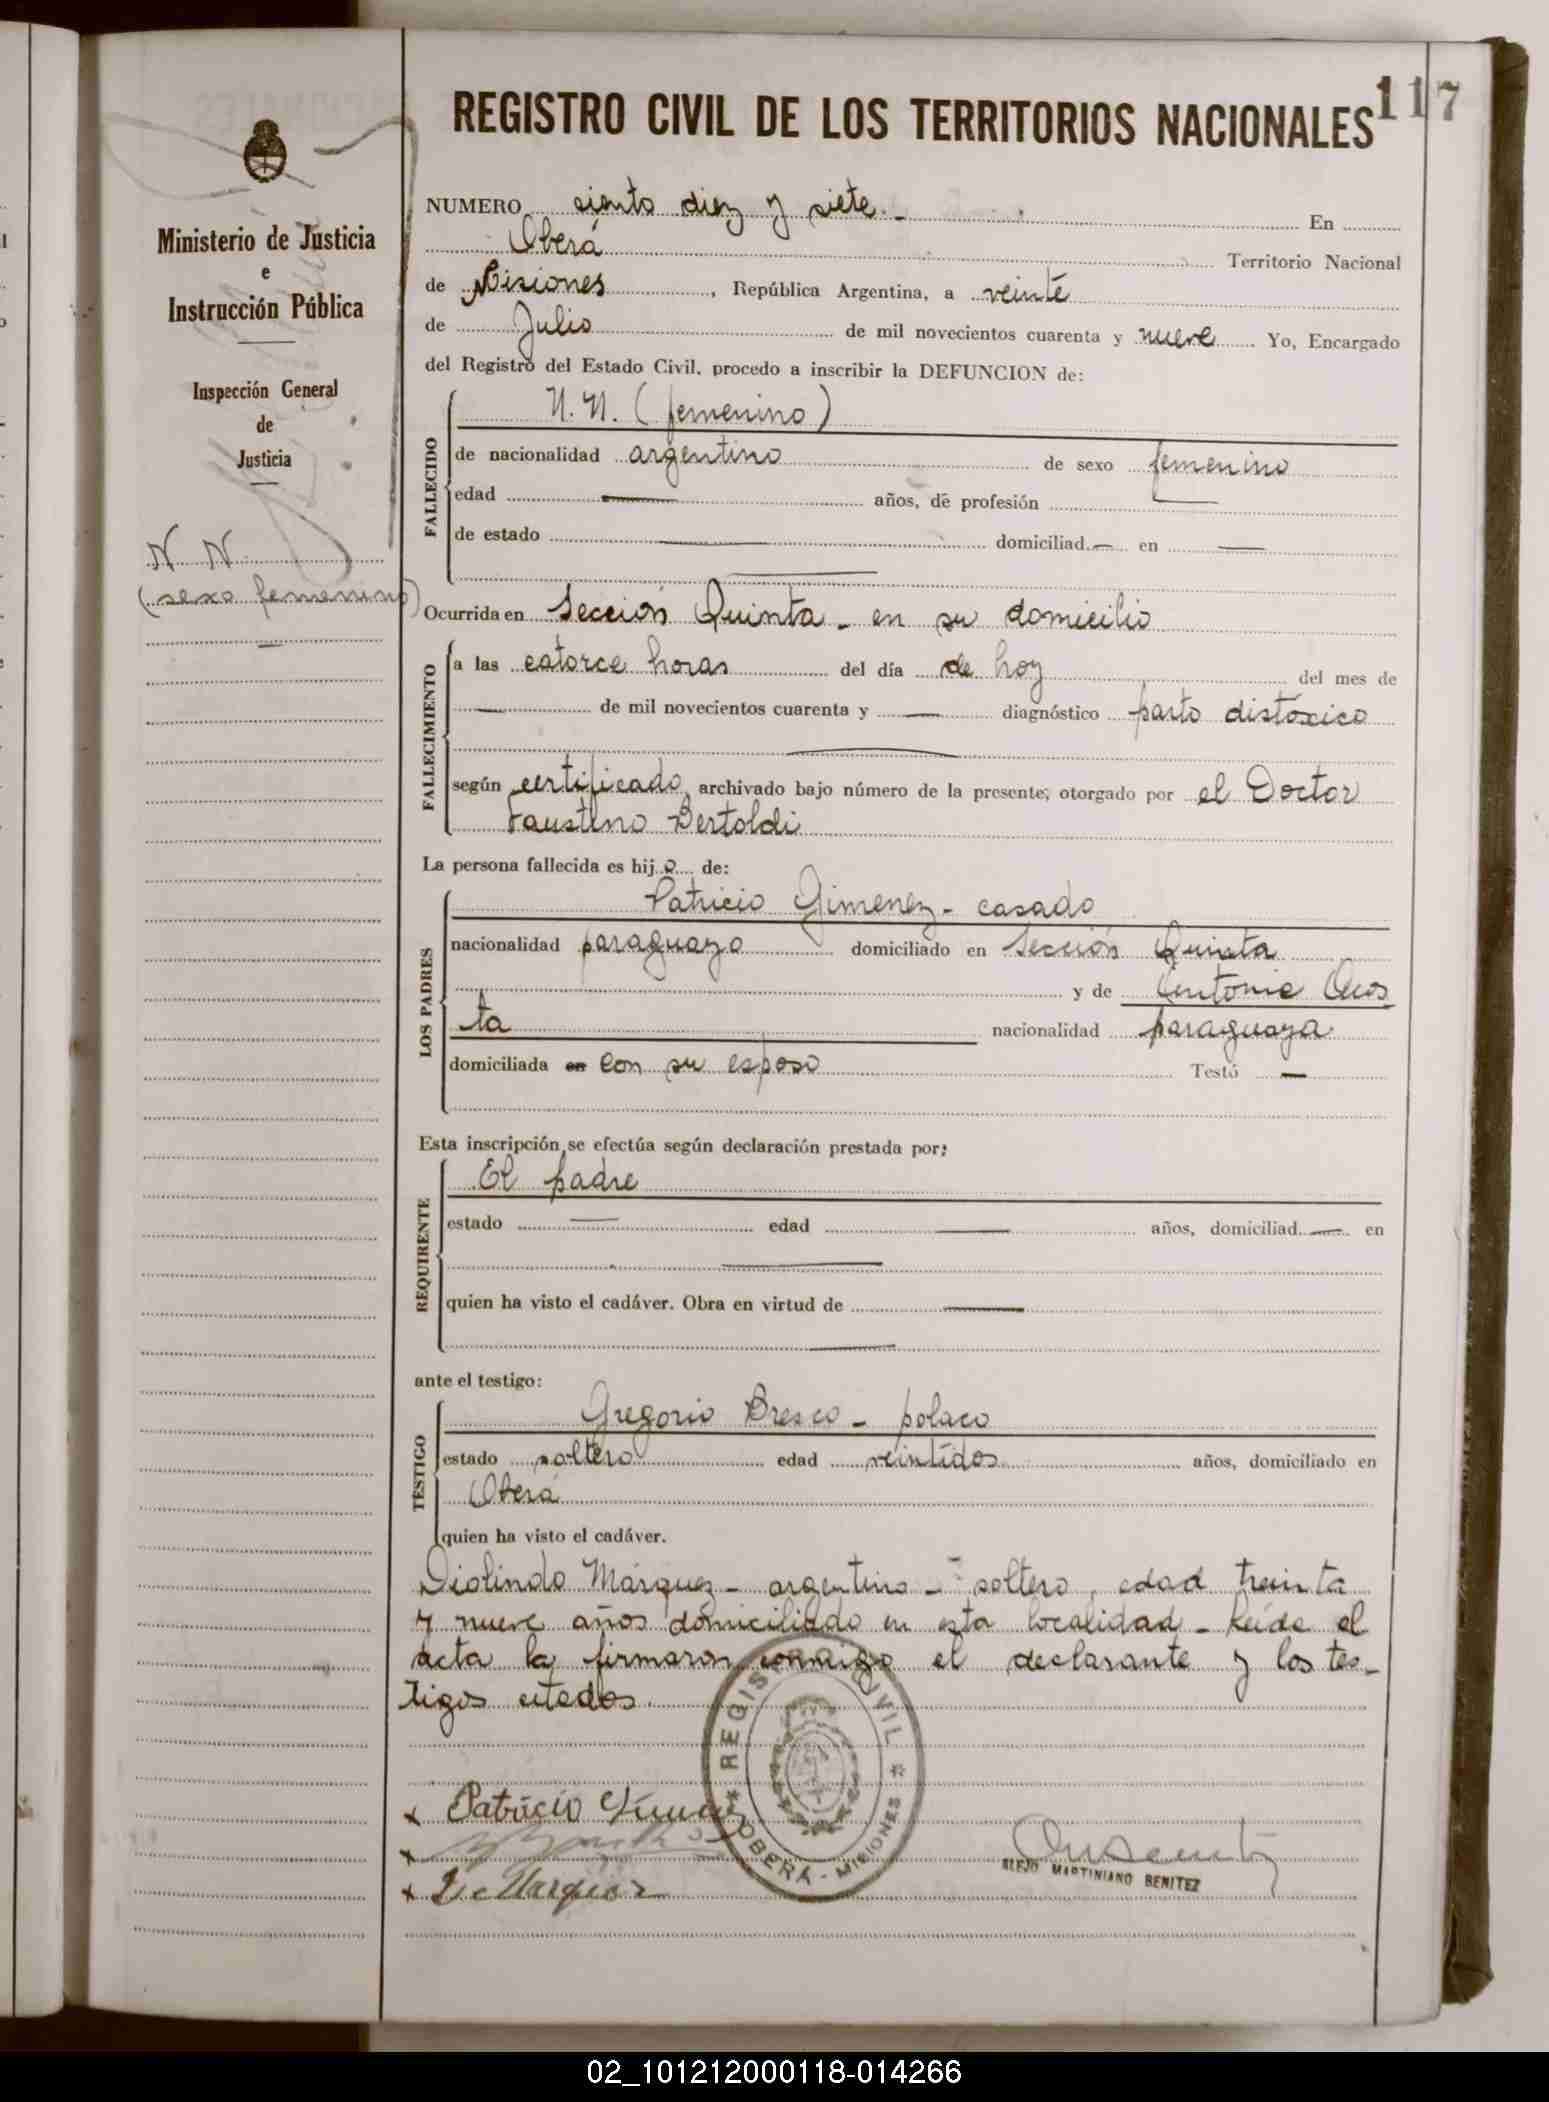 117
REGISTRO CIVIL DE LOS TERRITORIOS NACIONALES
Ministerio de Justicia
e
Instrucción Pública
Inspección General
de
Justicia
N. N.
(sexo femenino)
NUMERO siento diez y siete.- En
Oberá Territorio Nacional
de Misiones, República Argentina, a veinte
de Julio de mil novecientos cuarenta y nueve Yo, Encargado
del Registro del Estado Civil, procedo a inscribir la DEFUNCION de:
FALLECIDO
N. N. (femenino)
de nacionalidad argentino de sexo femenino
edad — años, de profesión —
de estado — domiciliad — en —
Ocurrida en Sección Quinta - en su domicilio
FALLECIMIENTO
a las catorce horas del día de hoy del mes de
— de mil novecientos cuarenta y — diagnóstico parto distoxico
según certificado, archivado bajo número de la presente, otorgado por el Doctor
Faustino Bertoldi
La persona fallecida es hijo de:
LOS PADRES
Patricio Gimenez - casado
nacionalidad paraguayo domiciliado en Sección Quinta
y de Antonia Acos
ta nacionalidad paraguaya
domiciliada en con su esposo Testó —
Esta inscripción se efectúa según declaración prestada por:
REQUIRENTE
El padre
estado — edad — años, domiciliad — en
quien ha visto el cadáver. Obra en virtud de —
ante el testigo:
TESTIGO
Gregorio Bresco - polaco
estado soltero edad veintidos años, domiciliado en
Oberá
quien ha visto el cadáver.
Diolindo Márquez - argentino - soltero, edad treinta
y nueve años domiciliado en esta localidad - Leída el
acta la firmaron conmigo el declarante y los tes-
tigos citados.
REGISTRO CIVIL
OBERÁ - MISIONES
x Patricio Gimenez
x
x D. Marquez
ALEJO MARTINIANO BENITEZ
02_101212000118-014266